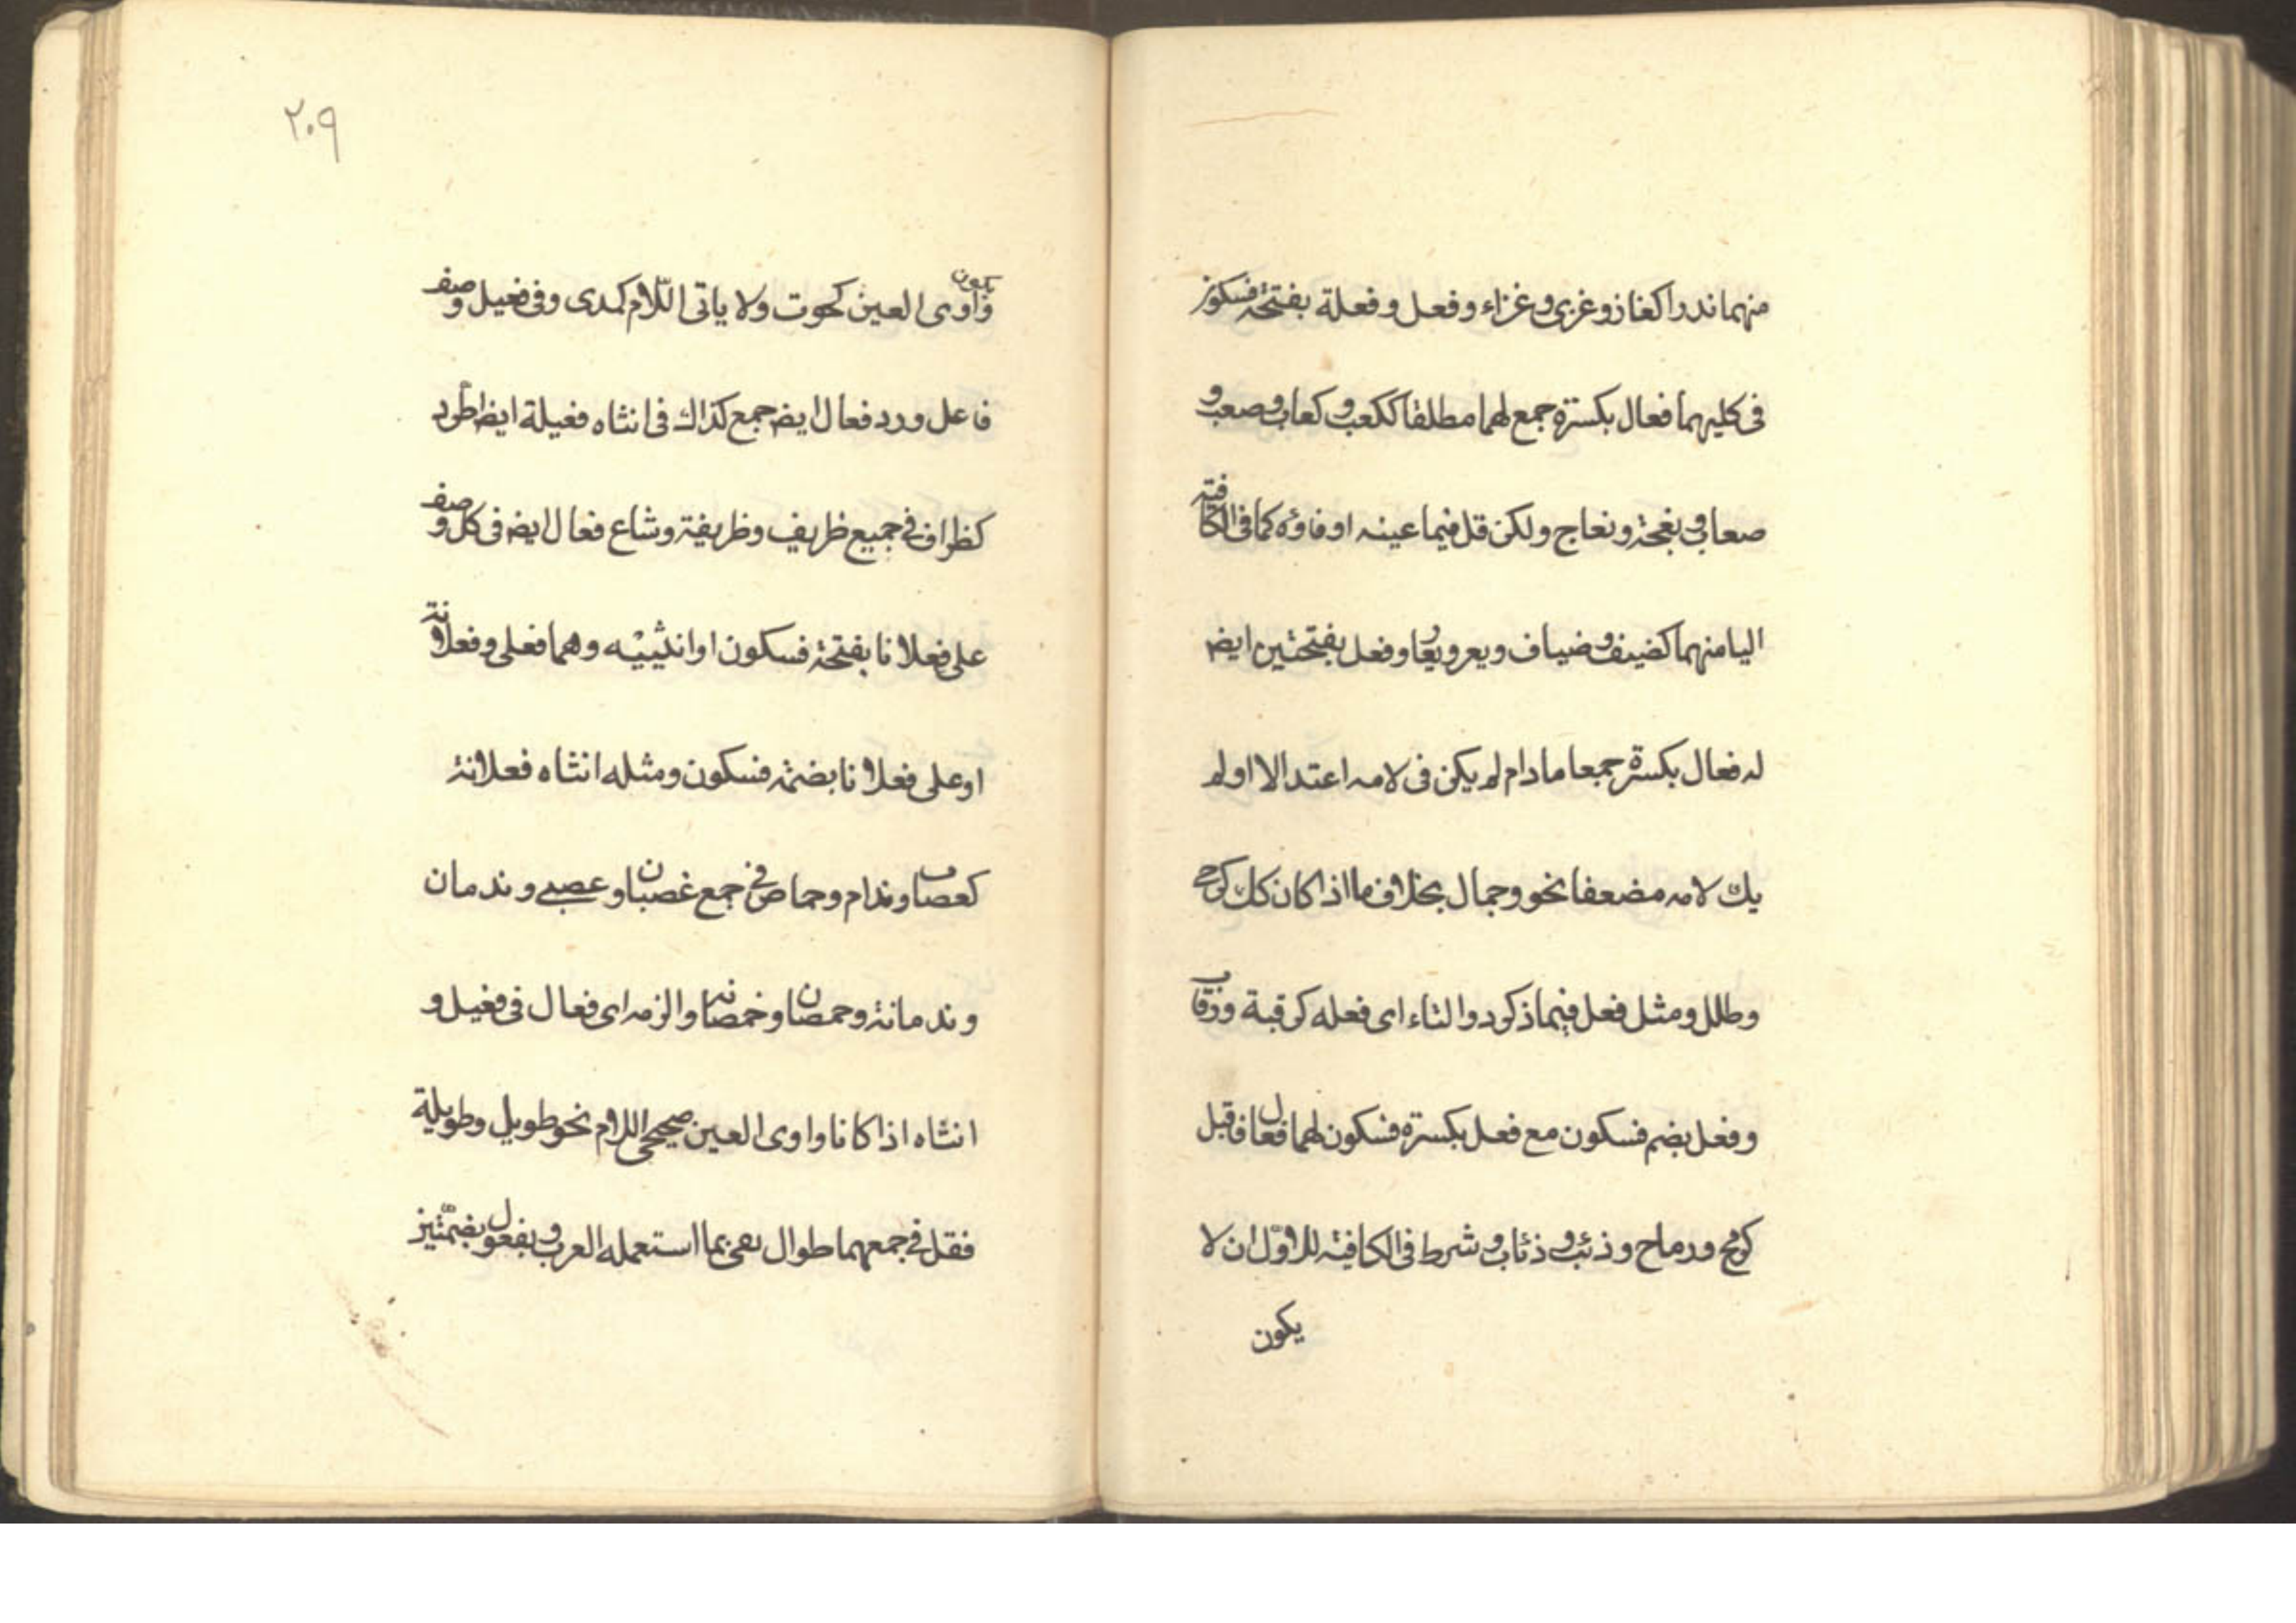 منهما ندرا كغاز وغزى وغزاء وفعل وفعلة بفتحة فسكون
فى كليهما فعال بكسرة جمع لهما مطلقا ككعب وكعاب وصعب و
صعاب ونعجة ونعاج ولكن قل فيما عينه او فاؤه كما فى الكافية
اليا منهما كضيف وضياف ويعر ويعار وفعل بفتحتين ايض
له فعال بكسرة جمعا مادام لم يكن فى لامه اعتدالا او لم
يك لامه مضعفا نحو وجمال بخلاف ما اذا كان كل كرحى
وطلل ومثل فعل فيما ذكر ذو التاء اى فعله كرقبة ورقاب
وفعل بضم فسكون مع فعل بكسرة فسكون لهما فعال فاقبل
كرمح ورماح وذئب وذئاب وشرط فى الكافية للاول ان لا
يكون
٢٠٩
يكون
واوى العين كحوت ولا ياتى اللام كمدى وفى فعيل وصف
فاعل ورد فعال ايض جمع كذاك فى انثاه فعيلة ايض اطرد
كظراف فى جميع ظريف وظريفة وشاع فعال ايض فى كل وصف
على فعلانا بفتحة فسكون او انثييه وهما فعلى وفعلانة
او على فعلانا بضمة فسكون ومثله انثاه فعلانة
كعصاب وندام وحماص فى جمع غصبان وعصبى وندمان
وندمانة وحمصان وخمصانه والزمه اى فعال فى فعيل و
انثاه اذا كانا واوى العين صحيحى اللام نحو طويل وطويلة
فقل فى جمعهما طوال بما استعمله العرب وبفعول بضمتين